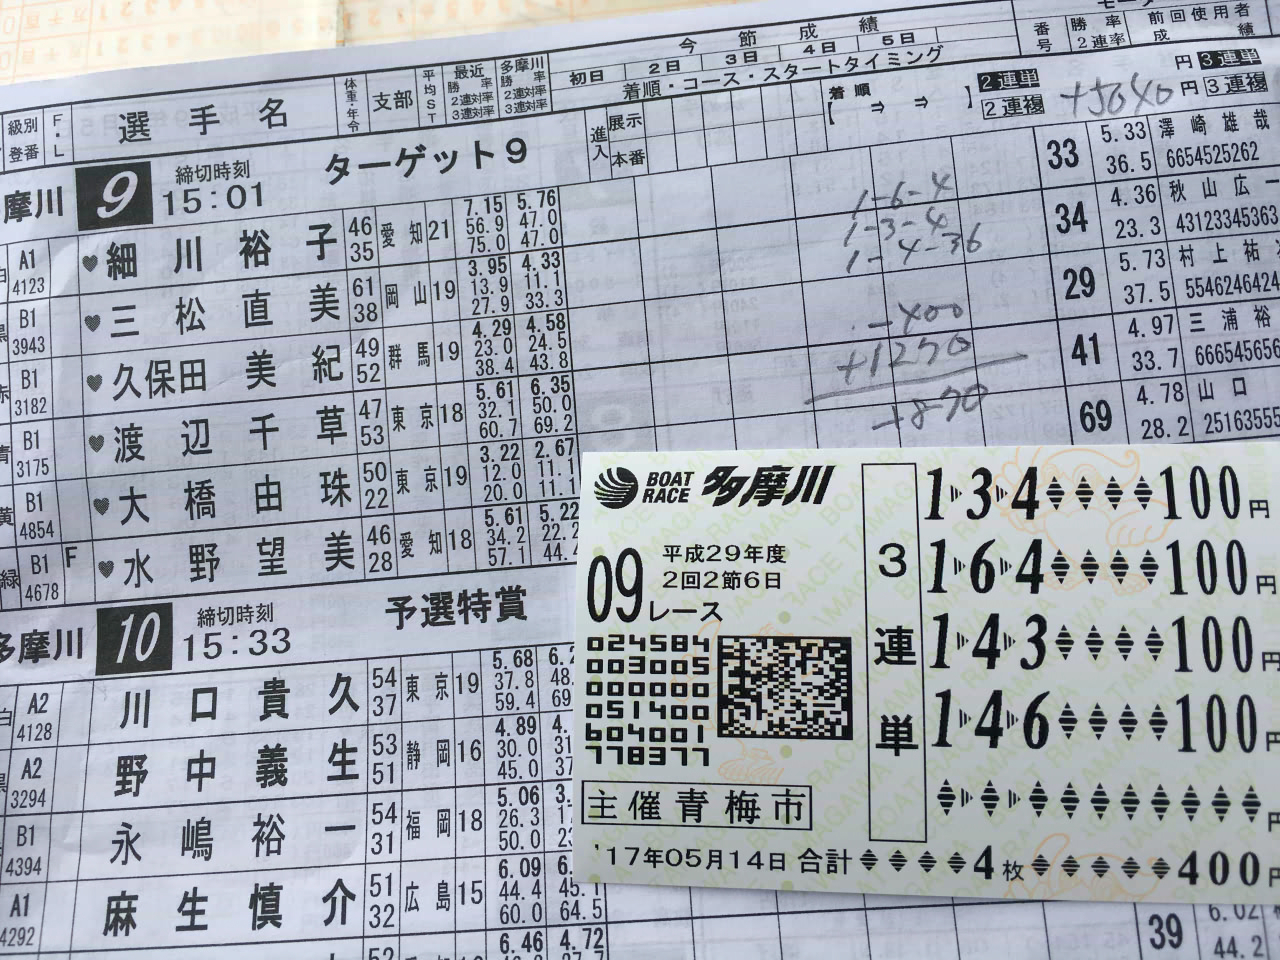 今節成績
初日 2日 3日 4日 5日
着順・コース・スタートタイミング
番号 勝率 2連率 前回使用者 成績
級別 登番 F・L 選手名 体重・年令 支部 平均ST 最近 勝率 2連対率 3連対率 多摩川 勝率 2連対率 3連対率
進入 展示 本番
着順
【 ⇒ ⇒ 】 2連単 円 3連単
2連複 +5040 円 3連複
摩川 9 締切時刻 15:01 ターゲット9
白 A1 4123 ♥細川裕子 46 35 愛知 21 7.15 56.9 75.0 5.76 47.0 47.0 33 5.33 36.5 澤崎雄哉 6654525262
黒 B1 3943 ♥三松直美 61 38 岡山 19 3.95 13.9 27.9 4.33 11.1 33.3 34 4.36 23.3 秋山広一 43123345363
赤 B1 3182 ♥久保田美紀 49 52 群馬 19 4.29 23.0 38.4 4.58 24.5 43.8 29 5.73 37.5 村上祐 5546246424
青 B1 3175 ♥渡辺千草 47 53 東京 18 5.61 32.1 60.7 6.35 50.0 69.2 41 4.97 33.7 三浦裕 666545656
黄 B1 4854 ♥大橋由珠 50 22 東京 19 3.22 12.0 20.0 2.67 11.1 11.1 69 4.78 28.2 山口 25163555
緑 B1 4678 F ♥水野望美 46 28 愛知 18 5.61 34.2 57.1 5.22 22.2 44.
1-6-4
1-3-4
1-4-36
-400
+1270
+870
多摩川 10 締切時刻 15:33 予選特賞
白 A2 4128 川口貴久 54 37 東京 19 5.68 37.8 59.4 6.2 48. 69
黒 A2 3294 野中義生 53 51 静岡 16 4.89 30.0 45.0 4. 31 37
B1 4394 永嶋裕一 54 31 福岡 18 5.06 26.3 50.0 3. 1 23
A1 4292 麻生慎介 51 32 広島 15 6.09 44.4 60.0 6. 45.1 64.5
52 6.46 4.72
39 6.02 44.2
BOAT RACE 多摩川
09レース
平成29年度
2回2節6日
024584
003005
000000
051400
604001
778377
主催青梅市
3連単
1 3 4 100円
1 6 4 100円
1 4 3 100円
1 4 6 100円
円
'17年05月14日 合計 4枚 400円